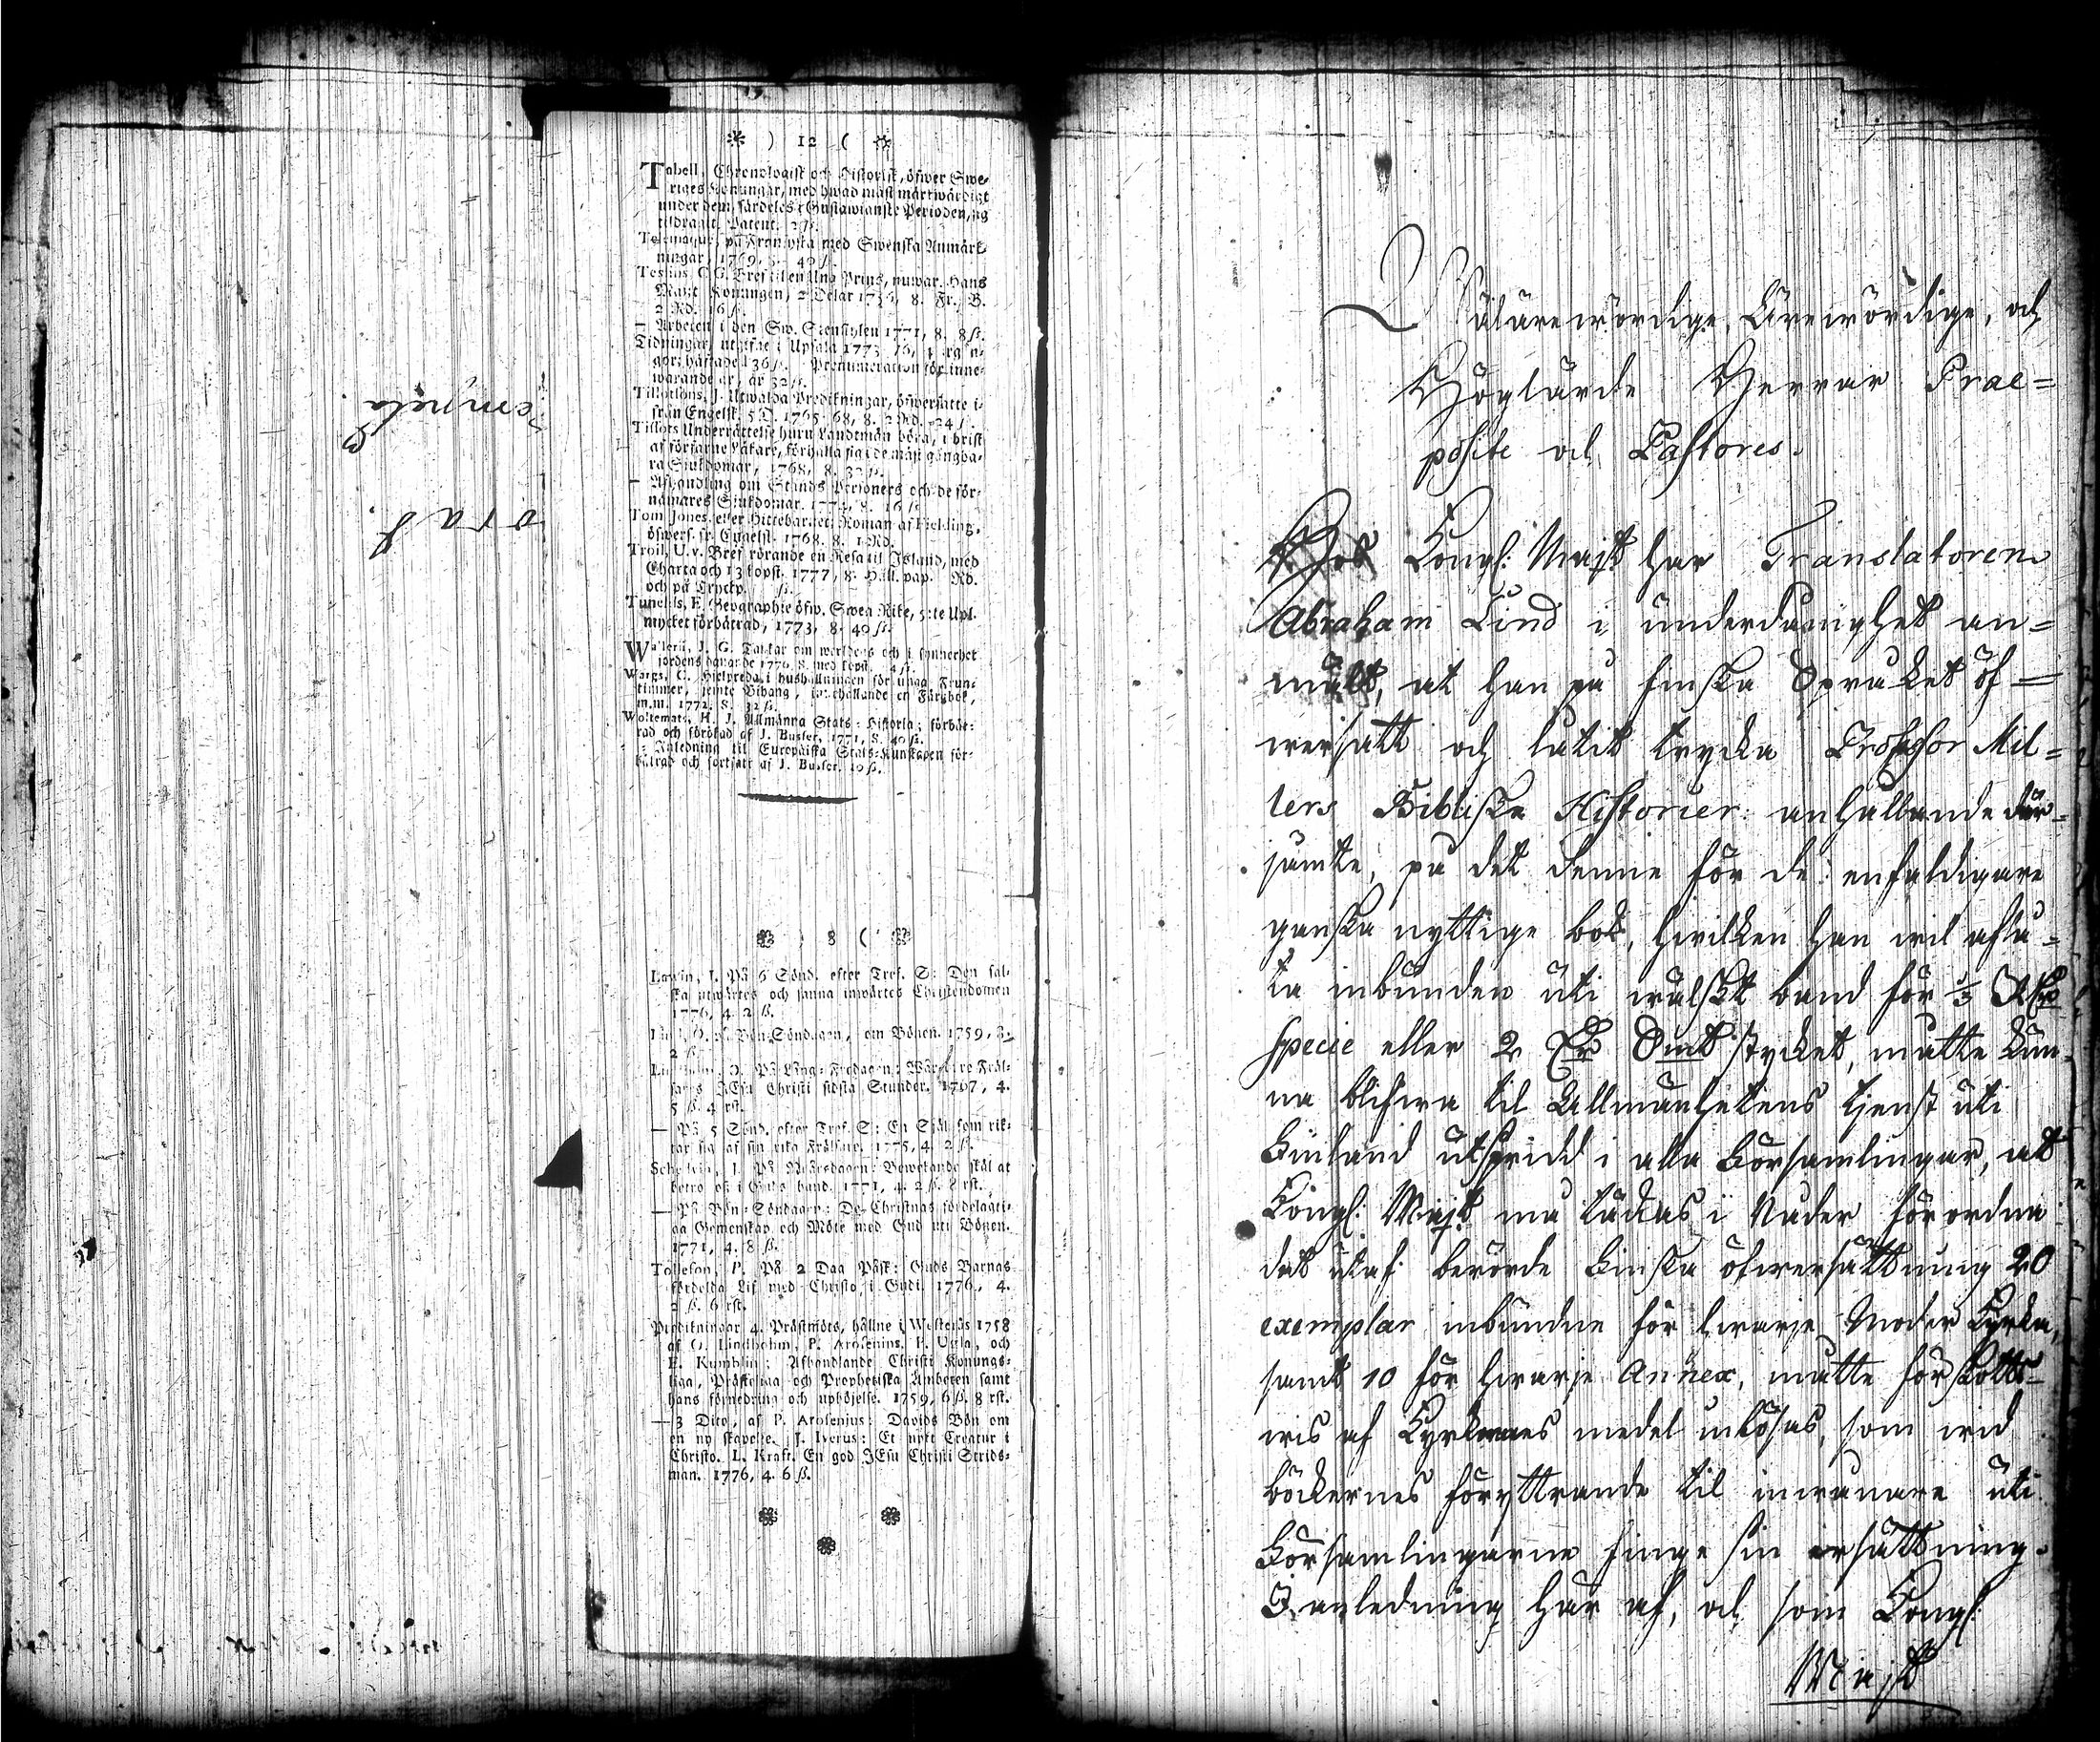 ) 12 (
Tabell, Chronologisk och Historisk, öfwer Swe-
riges Konungar, med hwad mäst märkwärdigt
under dem, särdeles i Gustawianske Perioden, sig
tildragit. Patent. 2 ß.
på Fransyska med Swenska Anmärk-
ningar, 1769, 40 ß.
Tessins, C. G. Bref til en Ung Prins, nuwar. Hans
Maj:t Konungen, 2 Delar 1756, 8. Fr. B.
2 Rd. 16 ß.
— Arbeten i den Sw. Stenstylen 1771, 8. 8 ß.
Tidningar, utgifne i Upsala 1773, 76, 4 årgån-
gor; häftade 36 ß. Prenumeration för inne-
warande år, är 32 ß.
Tillotsons, J. Utwalda Predikningar, öfwersatte i-
från Engelsk. 5 D. 1765-68, 8. 2 Rd. 24 ß.
Tissots Underrättelse huru Landtmän böra, i brist
af förfarne Läkare, förhålla sig i de mäst gångba-
ra Sjukdomar, 1768, 8. 32 ß.
— Afhandling om Stånds Personers och de för-
nämares Sjukdomar. 1774, 8. 16 ß.
Tom Jones, eller Hittebarnet; Roman af Fielding,
öfwers. fr. Engelsk. 1768. 8. 1 Rd.
Troil, U. v. Bref rörande en Resa til Island, med
Charta och 13 kopst. 1777, 8. Holl. pap. Rd.
och på Tryckp. ß.
Tunelds, E. Geographie öfw. Swea Rike, 5:te Upl.
mycket förbättrad, 1773, 8. 40 ß.
Wallerii, J. G. Tankar om werldens och i synnerhet
jordens danande 1776. 8. med kopst. 4 ß.
Wargs, C. Hjelpreda i hushållningen för unga Frun-
timmer, jemte Bihang, innehållande en Färgbok,
m.m. 1772. 8. 32 ß.
Woltemats, H. J. Allmänna Stats-Historia; förbät-
rad och förökad af J. Busser. 1771, 8. 40 ß.
— Inledning til Europäiska Stats-Kunskapen för-
bättrad och fortsatt af J. Busser. 10 ß.
) 8 (
Lawin, J. På 6 Sönd. efter Tref. S: Den fal-
ska utwärtes och sanna inwärtes Christendomen
1776, 4. 2 ß.
på Bön-Söndagen, om Bönen. 1759,
2 ß.
O. På Lång-Fredagen: Wår Fräl-
sares JEsu Christi sidsta Stunder. 1767, 4.
5 ß. 4 rst.
— På 5 Sönd. efter Tref. S: En Själ som rik-
tar sig af sin rika Frälsare. 1775, 4. 2 ß.
J. På Nyårsdagen: Bewekande skäl at
betro oß i Guds hand. 1771, 4. 2 ß. 8 rst.
— På Bön-Söndagen: De Christnas fördelagti-
ga Gemenskap och Möte med Gud uti Bönen.
1771, 4. 8 ß.
Tollesson, P. På 2 Dag Påsk: Guds Barnas
fördolda Lif med Christo i Gudi. 1776, 4.
2 ß. 6 rst.
Predikningar 4. Prästmöts, hållne i Westerås 1758
af O. Lindbohm, P. Arosenius, P. Ugla, och
E. Kumblin; Afhandlande Christi Konungs-
liga, Prästerliga och Prophetiska Ämbeten samt
hans förnedring och uphöjelse. 1759, 6 ß. 8 rst.
— 3 Dito, af P. Arosenius: Davids Bön om
en ny skapelse. J. Iverus: Et nytt Creatur i
Christo. L. Kraft. En god JEsu Christi Strids-
man. 1776, 4. 6 ß.
Wälärewördige, Ärewördige, och
Höglärde Herrar Prae=
positi och Pastores.
Hos Kongl: Majst har Translatoren
Abraham Lind i underdånighet an=
mält, at han på finska Språket öf=
wersatt och låtit trycka Professor Mil=
lers Bibliska Historier anhållande där=
jämte, på det denne för de enfaldigare
ganska nyttige bok, hwilken han wil aflå=
ta inbunden uti wälskt band för 1/3 Rdr
Specie eller 2 Dr Smt stycket, måtte kun=
na blifwa til Allmänhetens tjenst uti
Finland utspridd i alla Församlingar, at
Kongl: Majst må täckas i Nåder förordna
det utaf berörde Finska öfwersättning 20
exemplar inbundne för hwarje Moder Kyrka,
samt 10 för hwarje Annex, måtte förskotts=
wis af Kyrkornes medel inlösas, som wid
böckernes föryttrande til inwånare uti
Församlingarne finge sin ersättning.
I anledning här af, och som Kongl:
Majst